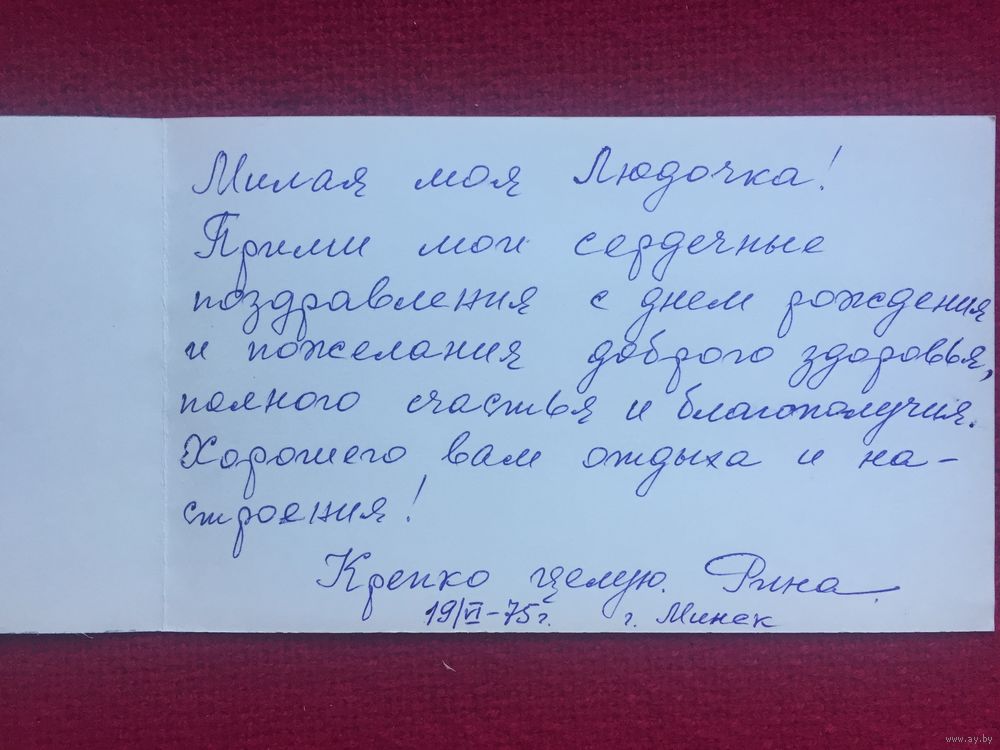 Милая моя Людочка!
Прими мои сердечные
поздравления с днем рождения
и пожелания доброго здоровья,
полного счастья и благополучия.
Хорошего вам отдыха и на-
строения!
Крепко целую. Рина.
19/VI-75г. г. Минск
www.ay.by